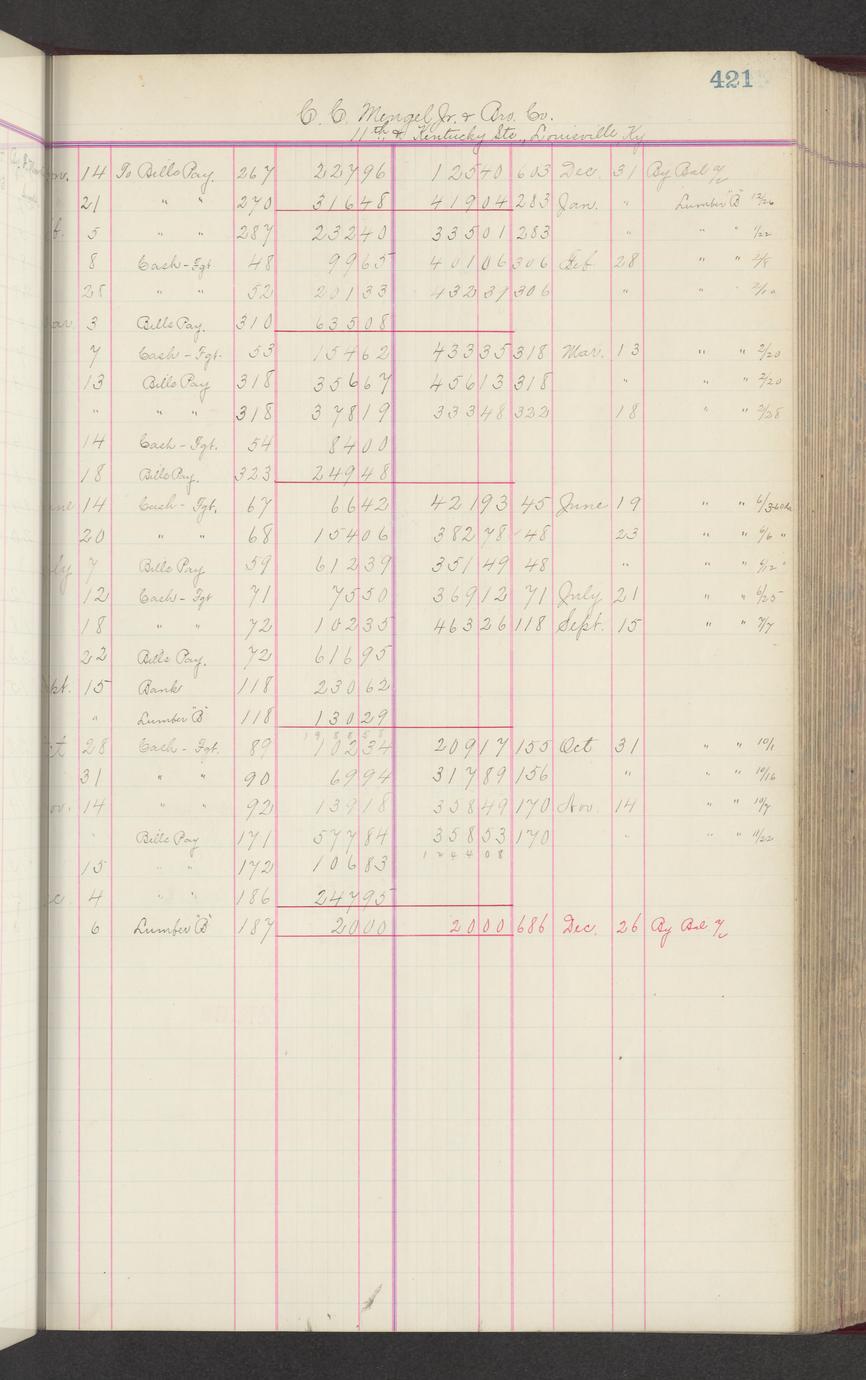 421
C. C. Mengel Jr. & Bro. Co.
11th & Kentucky Sts., Louisville, Ky
14 To Bills Pay. 267 227 96 125 40 603 Dec. 31 By Bal
21 " " 270 316 48 419 04 283 Jan. " Lumber "B" 12/26
5 " " 287 232 40 335 01 283 " " " 1/22
8 Cash - Fgt 48 99 65 401 06 306 Feb. 28 " " 2/8
28 " " 52 201 33 432 31 306 " " "
3 Bills Pay. 310 635 08
7 Cash - Fgt. 53 154 62 433 35 318 Mar. 13 " " 2/20
13 Bills Pay 318 356 67 456 13 318 " " " 2/20
" " " 318 378 19 333 48 322 18 " " 2/28
14 Cash - Fgt. 54 84 00
18 Bills Pay. 323 249 48
14 Cash - Fgt. 67 66 42 421 93 45 June 19 " "
20 " " 68 154 06 382 78 48 23 " " 6/6 "
7 Bills Pay 59 612 39 351 49 48 " " " 6/12 "
12 Cash - Fgt 71 75 50 369 12 71 July 21 " " 6/25
18 " " 72 102 35 463 26 118 Sept. 15 " " 7/7
22 Bills Pay. 72 616 95
15 Bank 118 230 62
" Lumber "B" 118 130 29
28 Cash - Fgt. 89 102 34 209 17 155 Oct 31 " " 10/1
31 " " 90 69 94 317 89 156 " " " 10/16
14 " " 92 139 18 358 49 170 Nov. 14 " " 10/7
" Bills Pay 171 577 84 358 53 170 " " " 11/22
1244 08
15 " " 172 106 83
4 " " 186 247 95
6 Lumber "B" 187 20 00 20 00 686 Dec. 26 By Bal